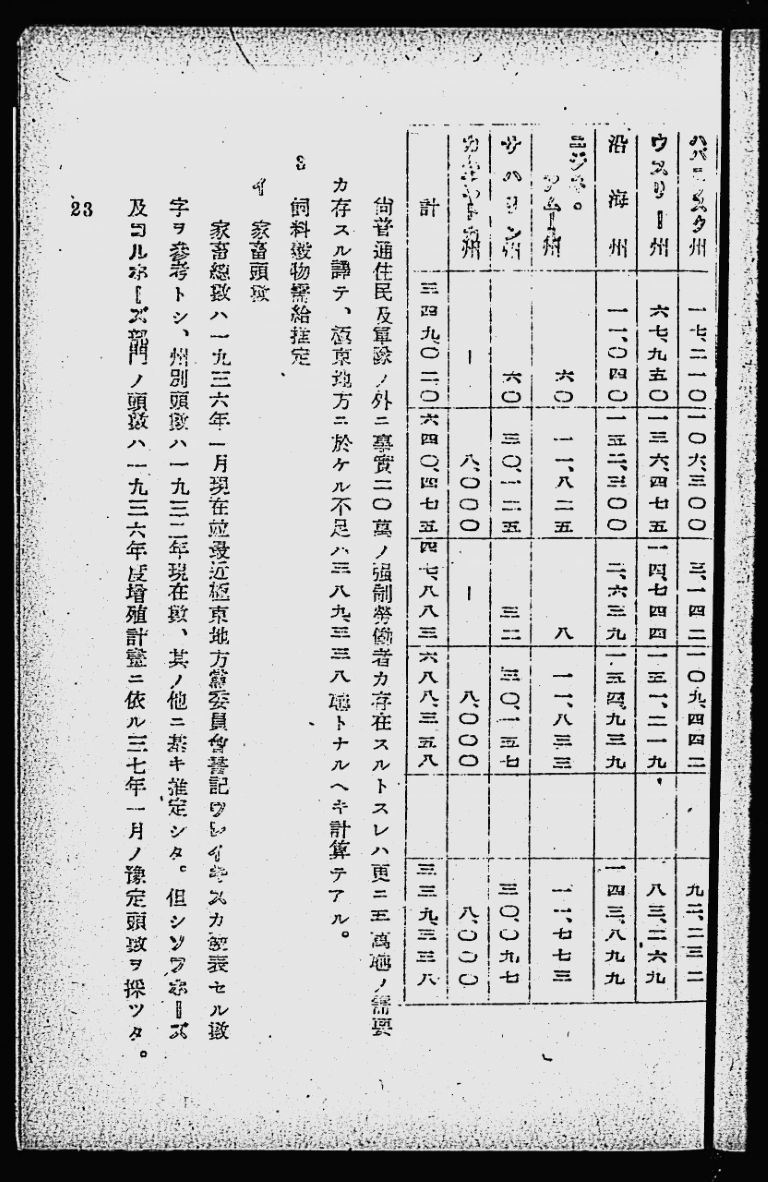 ハバロフスク州 一七、二一〇 一〇六、三〇〇 三、一四二 一〇九、四四二 九二、二三二
ウスリー州 六七、九五〇 一三六、四七五 一四、七四四 一五一、二一九 八三、二六九
沿海州 一一、〇四〇 一五二、三〇〇 二、六三九 一五四、九三九 一四三、八九九
ニジネ。アムール州 六〇 一一、八二五 八 一一、八三三 一一、七七三
サハリン州 六〇 三〇、一二五 三二 三〇、一五七 三〇、〇九七
カムチヤトカ州 ー 八、〇〇〇 ー 八、〇〇〇 八、〇〇〇
計 三四九、〇二〇 六四〇、四七五 四七、八八三 六八八、三五八 三三九、三三八
尙普通住民及軍隊ノ外ニ事實二〇萬ノ强制勞働者カ存在スルトスレハ更ニ五萬瓲ノ需要
カ存スル譯テ、極東地方ニ於ケル不足ハ三八九、三三八瓲トナルヘキ計算テアル。
3 飼料穀物需給推定
イ 家畜頭數
家畜總數ハ一九三六年一月現在竝最近極東地方黨委員會書記ウレイキスカ發表セル數
字ヲ參考トシ、州別頭數ハ一九三二年現在數、其ノ他ニ基キ推定シタ。但シソフホーズ
及コルホーズ部門ノ頭數ハ一九三六年度增殖計畫ニ依ル三七年一月ノ豫定頭數ヲ採ツタ。
23